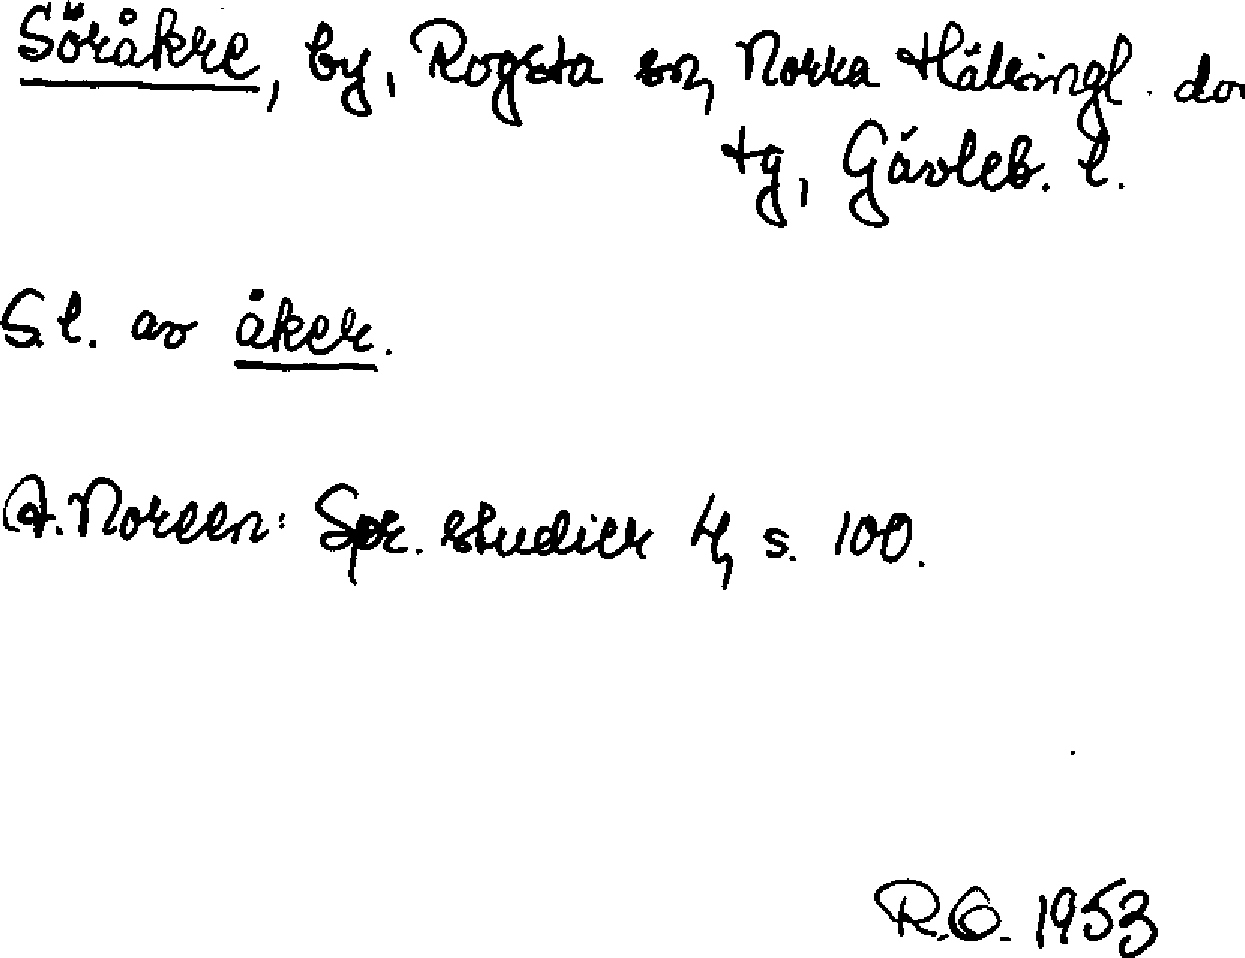 Söråkre, by, Rogsta sn, Norra Hälsingl. do
tg, Gävleb. l.
S.l. av åker.
A. Noreen: Spr. studier 4, s. 100.
R.G. 1953